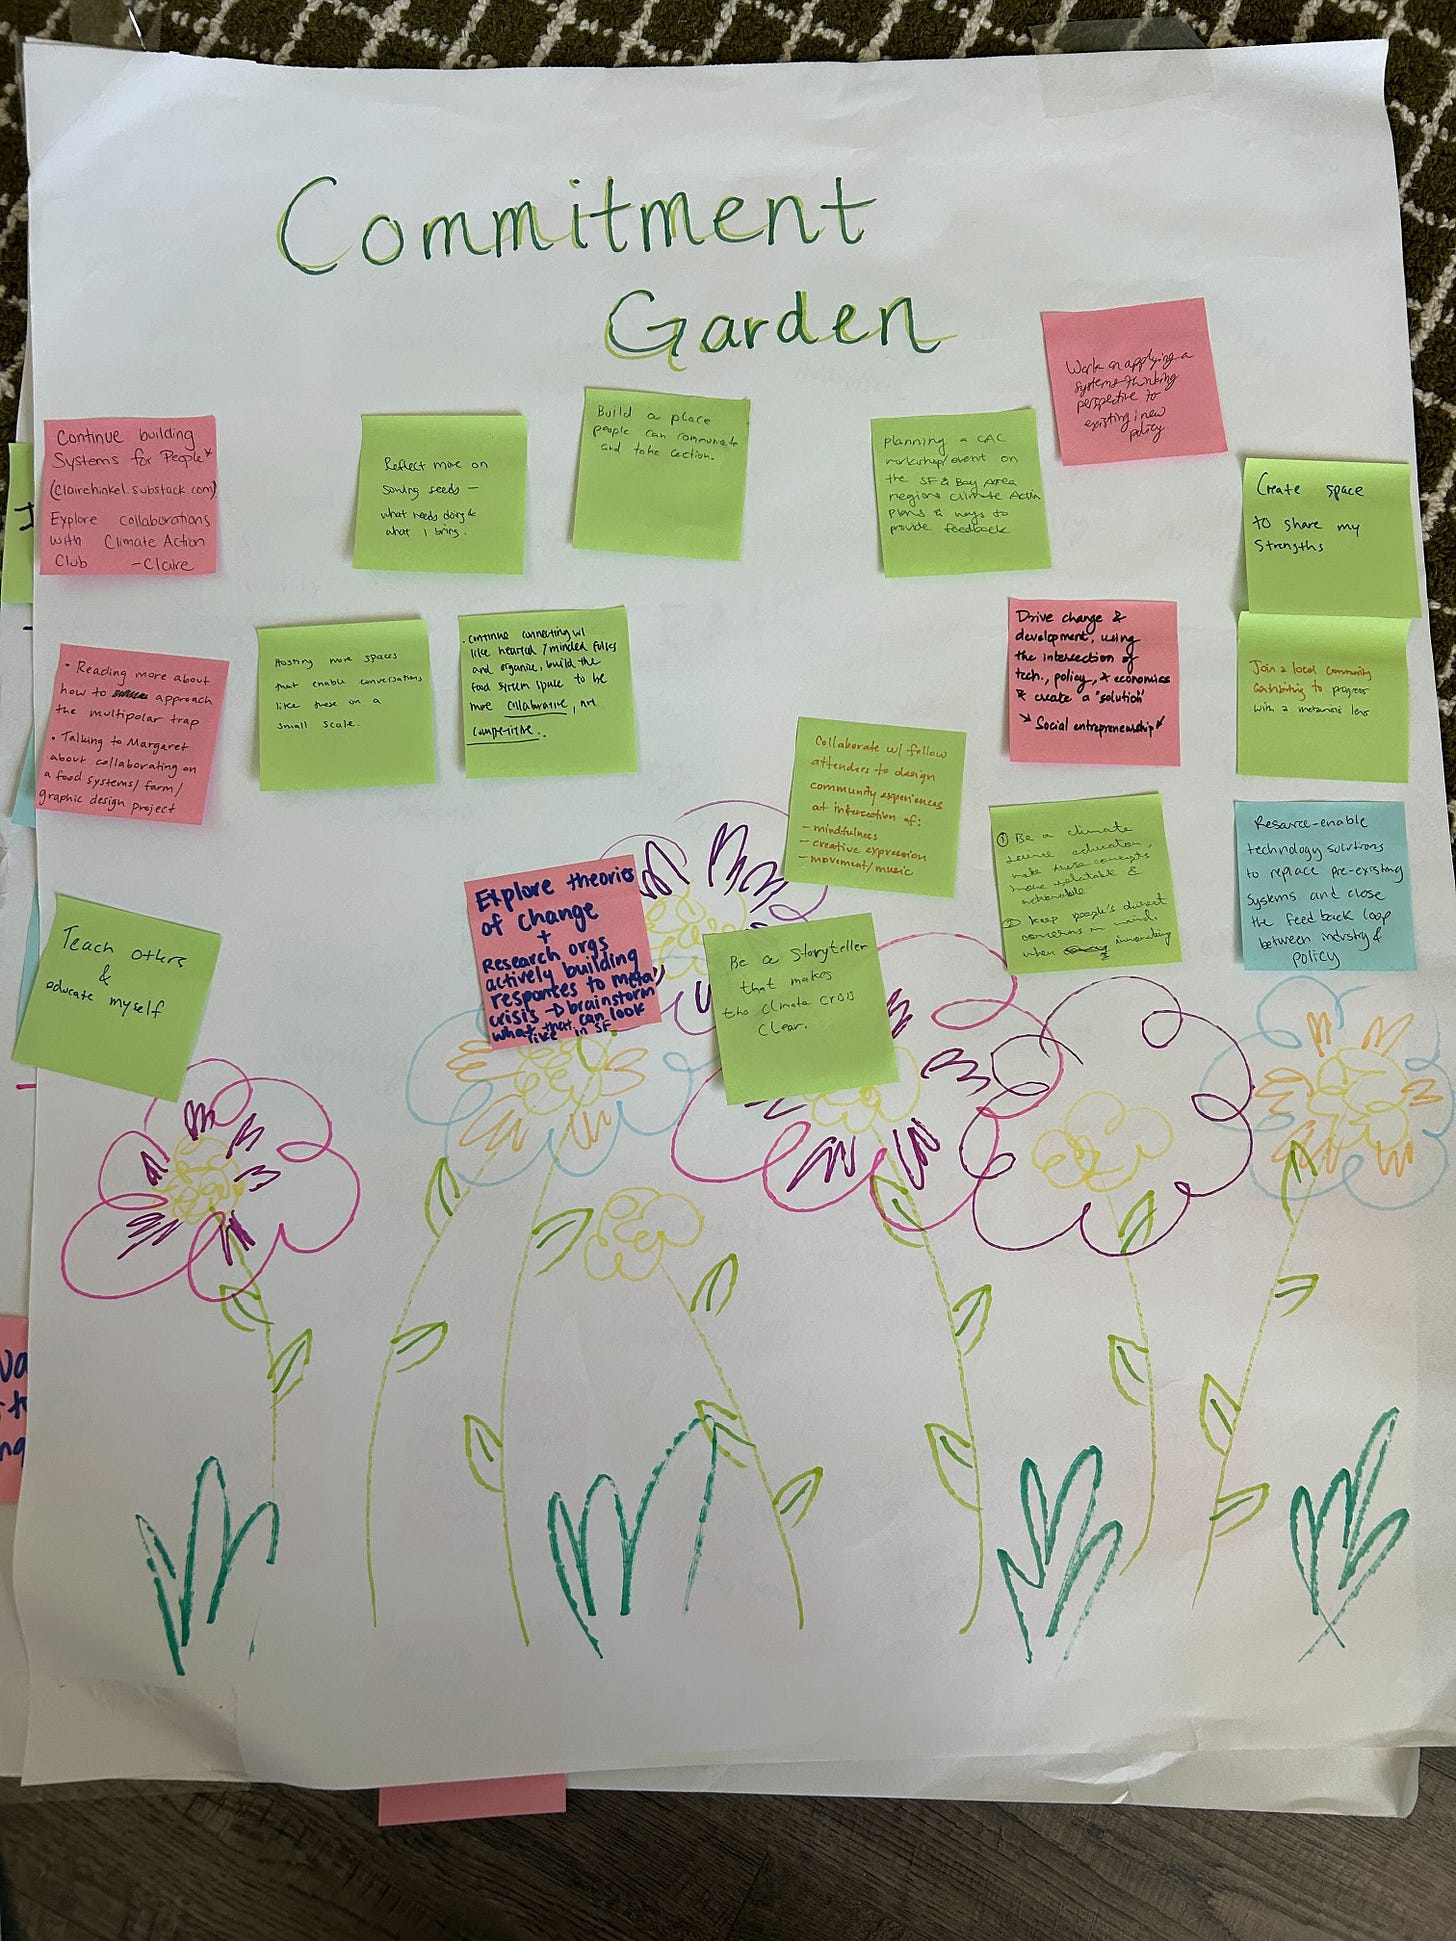 Commitment
Garden
Work on applying a
systems-thinking
perspective to
existing & new
policy
Continue building
Systems for People*
(clairehinkel.substack.com)
Explore collaborations
with Climate Action
Club -Claire
Reflect more on
sowing seeds –
what needs doing &
what I bring.
Build a place
people can communicate
and take action.
planning a CAC
workshop/event on
the SF & Bay Area
regions Climate Action
plans & ways to
provide feedback
Create space
to share my
Strengths
• Reading more about
how to approach
the multipolar trap
• Talking to Margaret
about collaborating on
a food systems/farm/
graphic design project
Hosting more spaces
that enable conversations
like these on a
small scale.
• continue connecting w/
like hearted/minded folks
and organize, build the
food system space to be
more collaborative, not
competitive.
Drive change &
development, using
the intersection of
tech., policy, & economics
& create a "solution"
Social entrepreneurship
Join a local community
to progress
with a metacrisis lens
Collaborate w/ fellow
attenders to design
community experiences
at intersection of:
– mindfulness
– creative expression
– movement/music
① Be a climate
science education,
make these concepts
more relatable &
actionable
② keep people's direct
concerns in mind,
when innovating
Resource-enable
technology solutions
to replace pre-existing
systems and close
the feedback loop
between industry &
policy
Explore theories
of change
+
Research orgs
actively building
responses to meta
crisis → brainstorm
what that can look
like in SF
Teach others
&
educate myself
Be a Storyteller
that makes
the climate crisis
clear.